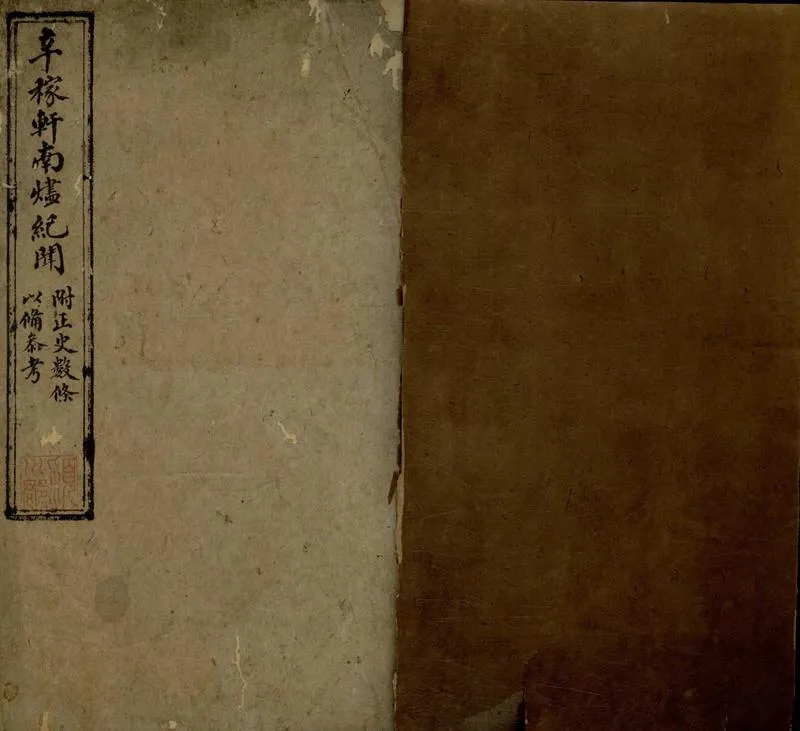 辛稼軒南燼紀聞
附正史數條
以備叅考